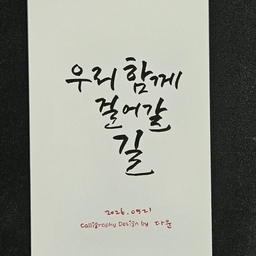 우리 함께
걸어갈
길
2026.0521
Calligraphy Design by 다운